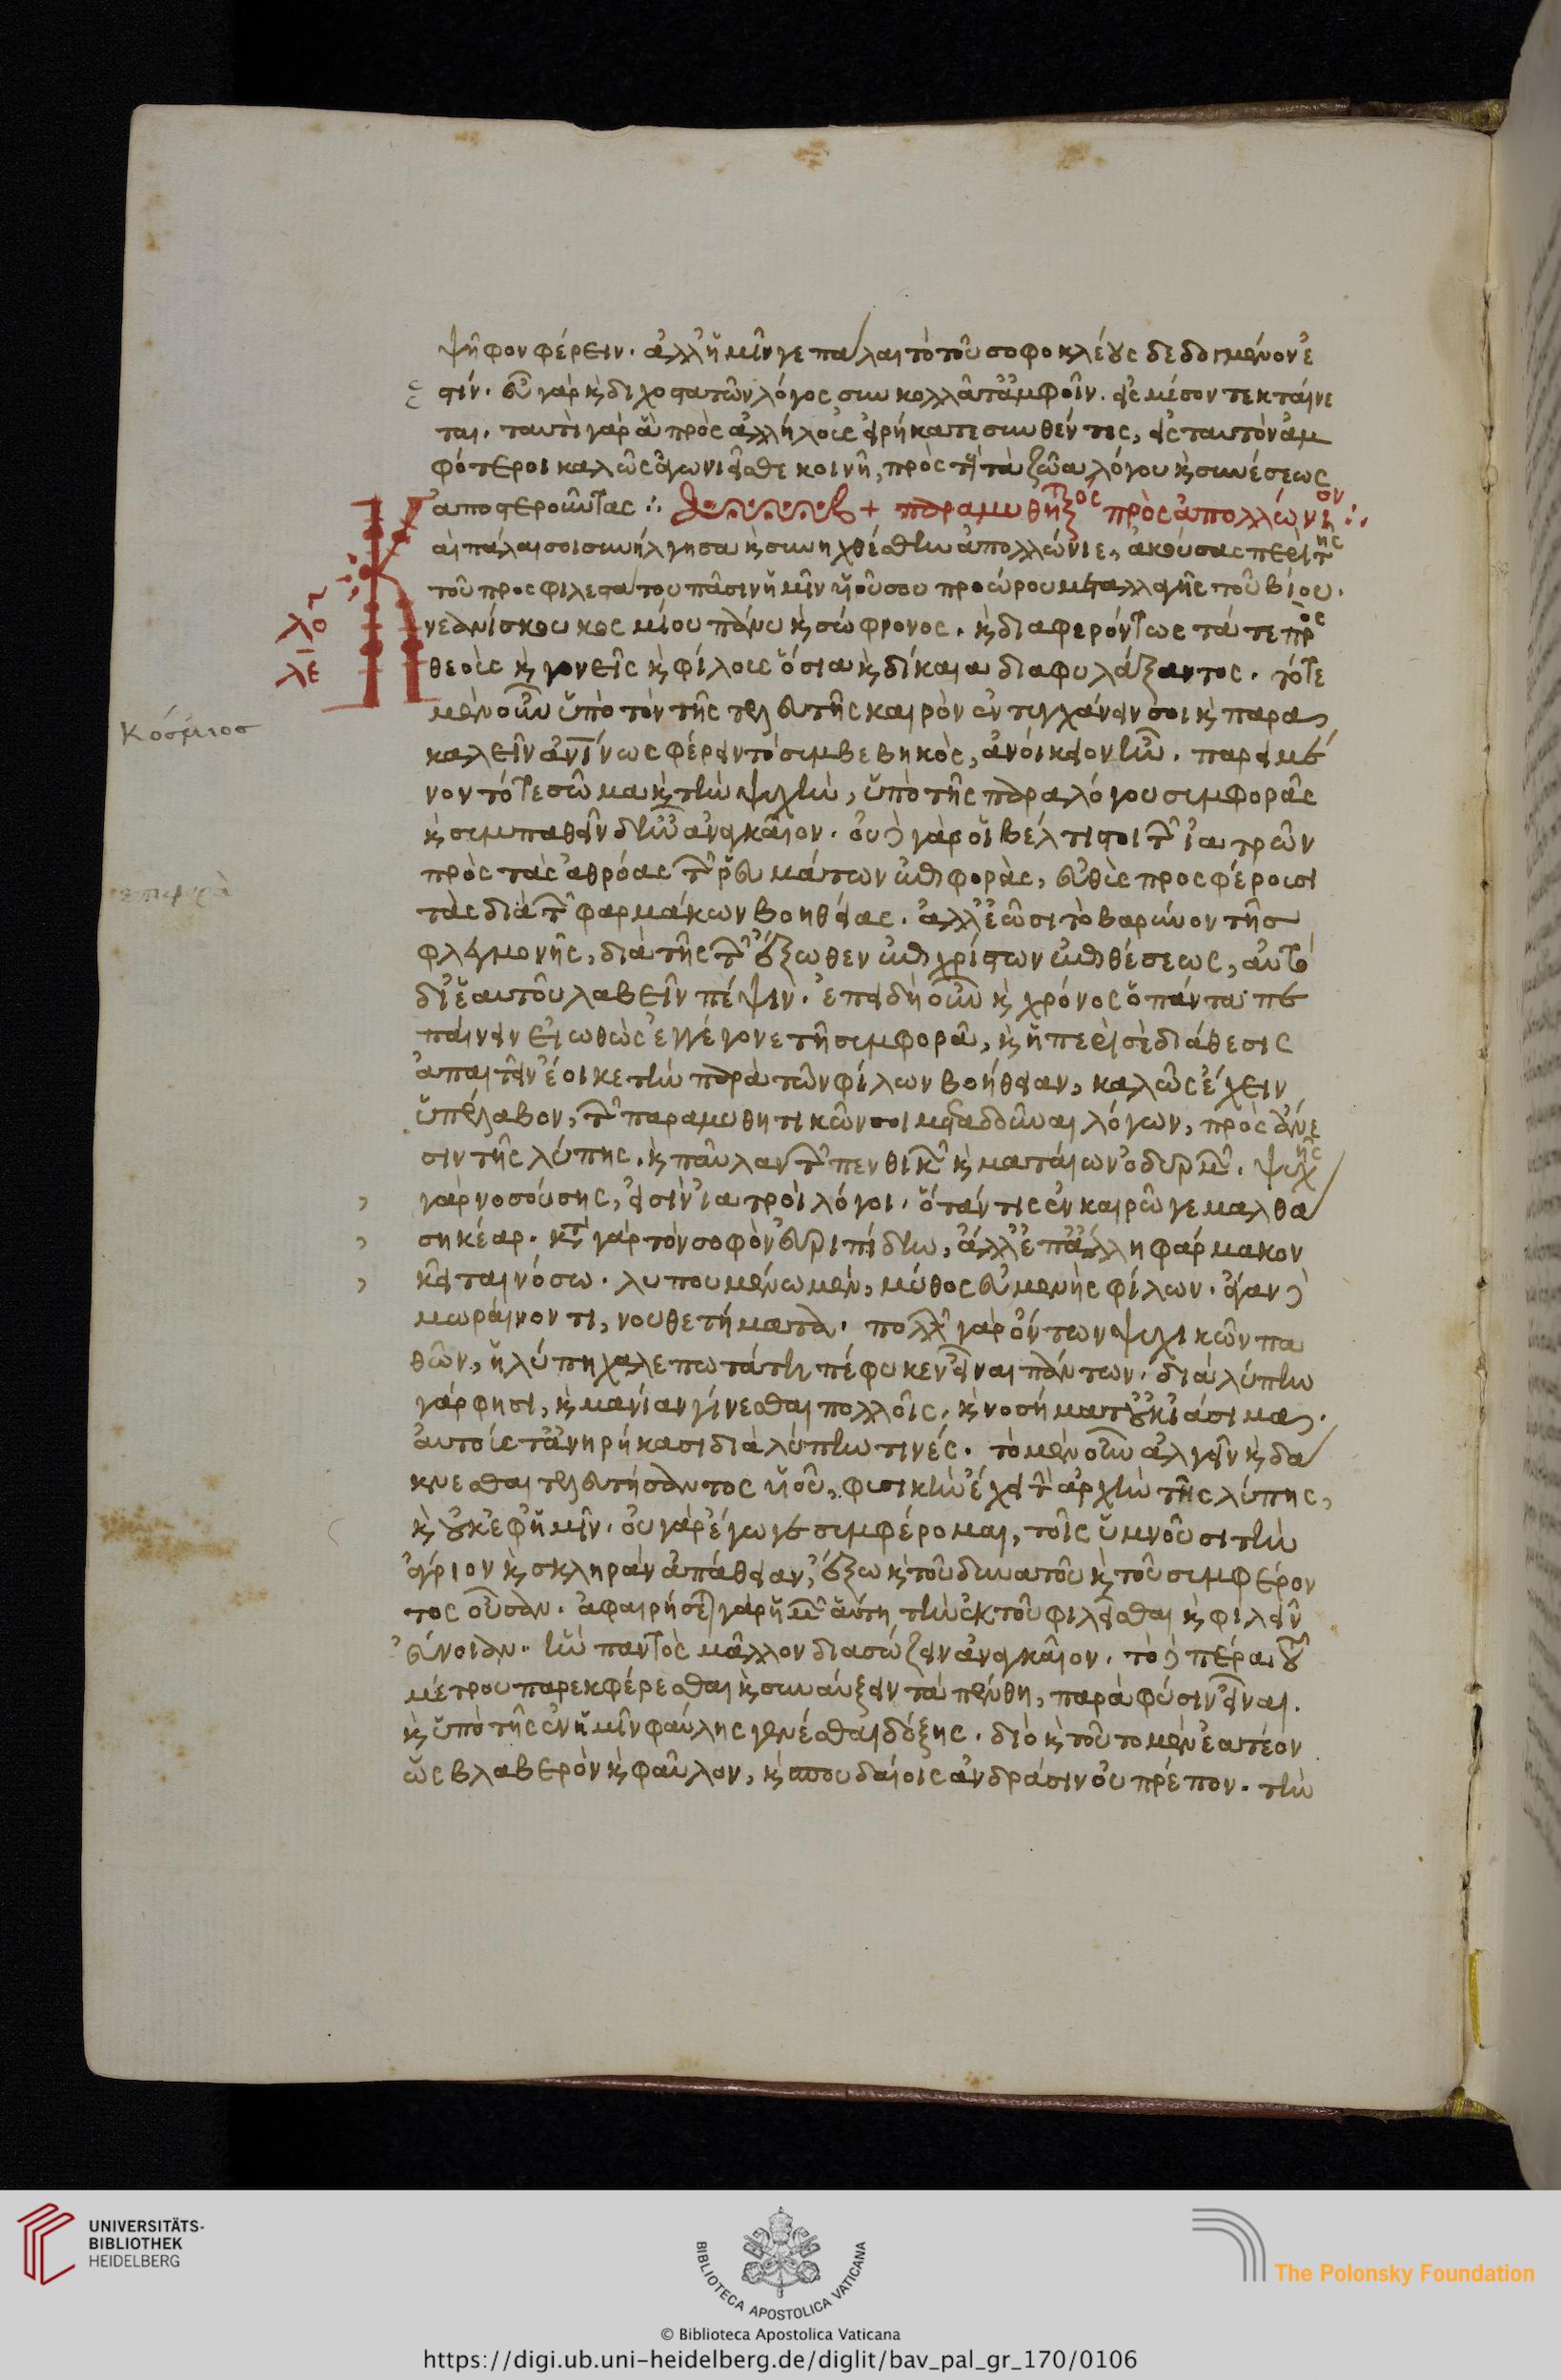 ψῆφον φέρειν. ἀλλ' ἡμῖν γε πάλαι τὸ τοῦ σοφοκλέους δεδογμένον ἐ
στίν. εὖ γὰρ καὶ διχοστατῶν λόγος συγκολλᾶτ' ἀμφοῖν. εἰς μέσον τεκταίνε
ται. ταυτὶ γὰρ ἃ πρὸς ἀλλήλους εἰρήκατε συνθέντες, εἰς ταυτὸν ἀμ
φότεροι καλῶς ἀγωνιεῖσθε κοινῇ, πρὸς τοὺς τὰ ζῶα λόγου καὶ συνέσεως
ἀποστεροῦντας ∴ + παραμυθητικὸς πρὸς ἀπολλώνιον ∴
αὶ πάλαι σοι συνήλγησα καὶ συνηχθέσθην ἀπολλώνιε, ἀκούσας περὶ τῆς
τοῦ προσφιλεστάτου πᾶσιν ἡμῖν υἱοῦ σου προώρου μεταλλαγῆς τοῦ βίου.
νεανίσκου κοσμίου πάνυ καὶ σώφρονος. καὶ διαφερόντως τά τε πρὸς
θεοὺς καὶ γονεῖς καὶ φίλους ὅσια καὶ δίκαια διαφυλάξαντος. τότε
μὲν οὖν ὑπὸ τὸν τῆς τελευτῆς καιρὸν ἐντυγχάνειν σοι καὶ παρα
καλεῖν ἀνθρωπίνως φέρειν τὸ συμβεβηκὸς, ἀνοίκειον ἦν. παρειμέ
νον τό τε σῶμα καὶ τὴν ψυχὴν, ὑπὸ τῆς παραλόγου συμφορᾶς
καὶ συμπαθεῖν δ' ἦν ἀναγκαῖον. οὐδὲ γὰρ οἱ βέλτιστοι τῶν ἰατρῶν
πρὸς τὰς ἀθρόας τῶν ῥευμάτων ἐπιφορὰς, εὐθὺς προσφέρουσι
τὰς διὰ τῶν φαρμάκων βοηθείας. ἀλλ' ἐῶσι τὸ βαρύνον τῆς
φλεγμονῆς, διὰ τῆς τῶν ἔξωθεν ἐπιχρίστων ἐπιθέσεως, αὐτὸ
δι' ἑαυτοῦ λαβεῖν πέψιν. ἐπειδὴ οὖν καὶ χρόνος ὁ πάντα πε
παίνειν εἰωθὼς ἐγγέγονε τῇ συμφορᾷ, καὶ ἡ περὶ σὲ διάθεσις
ἀπαιτεῖν ἔοικε τὴν παρὰ τῶν φίλων βοήθειαν, καλῶς ἔχειν
ὑπέλαβον, τῶν παραμυθητικῶν σοι μεταδοῦναι λόγων, πρὸς ἄνε
σιν τῆς λύπης. καὶ παῦλαν τῶν πενθικῶν καὶ ματαίων ὀδυρμῶν. ψυχῆς
γὰρ νοσούσης, εἰσὶν ἰατροὶ λόγοι. ὅταν τις ἐν καιρῷ γε μαλθά
σῃ κέαρ. κατὰ γὰρ τὸν σοφὸν εὐριπίδην, ἀλλ' ἐπ' ἄλλῃ φάρμακον
κεῖται νόσῳ. λυπουμένῳ μὲν, μῦθος εὐμενὴς φίλων. ἄγαν δὲ
μωραίνοντι, νουθετήματα. πολλῶν γὰρ ὄντων ψυχικῶν πα
θῶν, ἡ λύπη χαλεπωτάτη πέφυκεν εἶναι πάντων. διὰ λύπην
γάρ φησι, καὶ μανίαν γίνεσθαι πολλοῖς. καὶ νοσήματ' οὐκ ἰάσιμα.
αὑτούς τ' ἀνῃρήκασι διὰ λύπην τινές. τὸ μὲν οὖν ἀλγεῖν καὶ δά
κνεσθαι τελευτήσαντος υἱοῦ, φυσικὴν ἔχει τὴν ἀρχὴν τῆς λύπης,
καὶ οὐκ ἐφ' ἡμῖν. οὐ γὰρ ἔγωγε συμφέρομαι, τοῖς ὑμνοῦσι τὴν
ἄγριον καὶ σκληρὰν ἀπάθειαν, ἔξω καὶ τοῦ δυνατοῦ καὶ τοῦ συμφέρον
τος οὖσαν. ἀφαιρήσεται γὰρ ἡμῶν αὕτη τὴν ἐκ τοῦ φιλεῖσθαι καὶ φιλεῖν
εὔνοιαν. ἣν παντὸς μᾶλλον διασώζειν ἀναγκαῖον. τὸ δὲ πέρα τοῦ
μέτρου παρεκφέρεσθαι καὶ συναύξειν τὰ πένθη, παρὰ φύσιν εἶναι.
καὶ ὑπὸ τῆς ἐν ἡμῖν φαύλης γενέσθαι δόξης. διὸ καὶ τοῦτο μὲν ἐατέον
ὡς βλαβερὸν καὶ φαῦλον, καὶ σπουδαίοις ἀνδράσιν οὐ πρέπον. τὴν
Κόσμιος
επιφορὰ
UNIVERSITÄTS-
BIBLIOTHEK
HEIDELBERG
BIBLIOTECA APOSTOLICA VATICANA
The Polonsky Foundation
© Biblioteca Apostolica Vaticana
https://digi.ub.uni-heidelberg.de/diglit/bav_pal_gr_170/0106